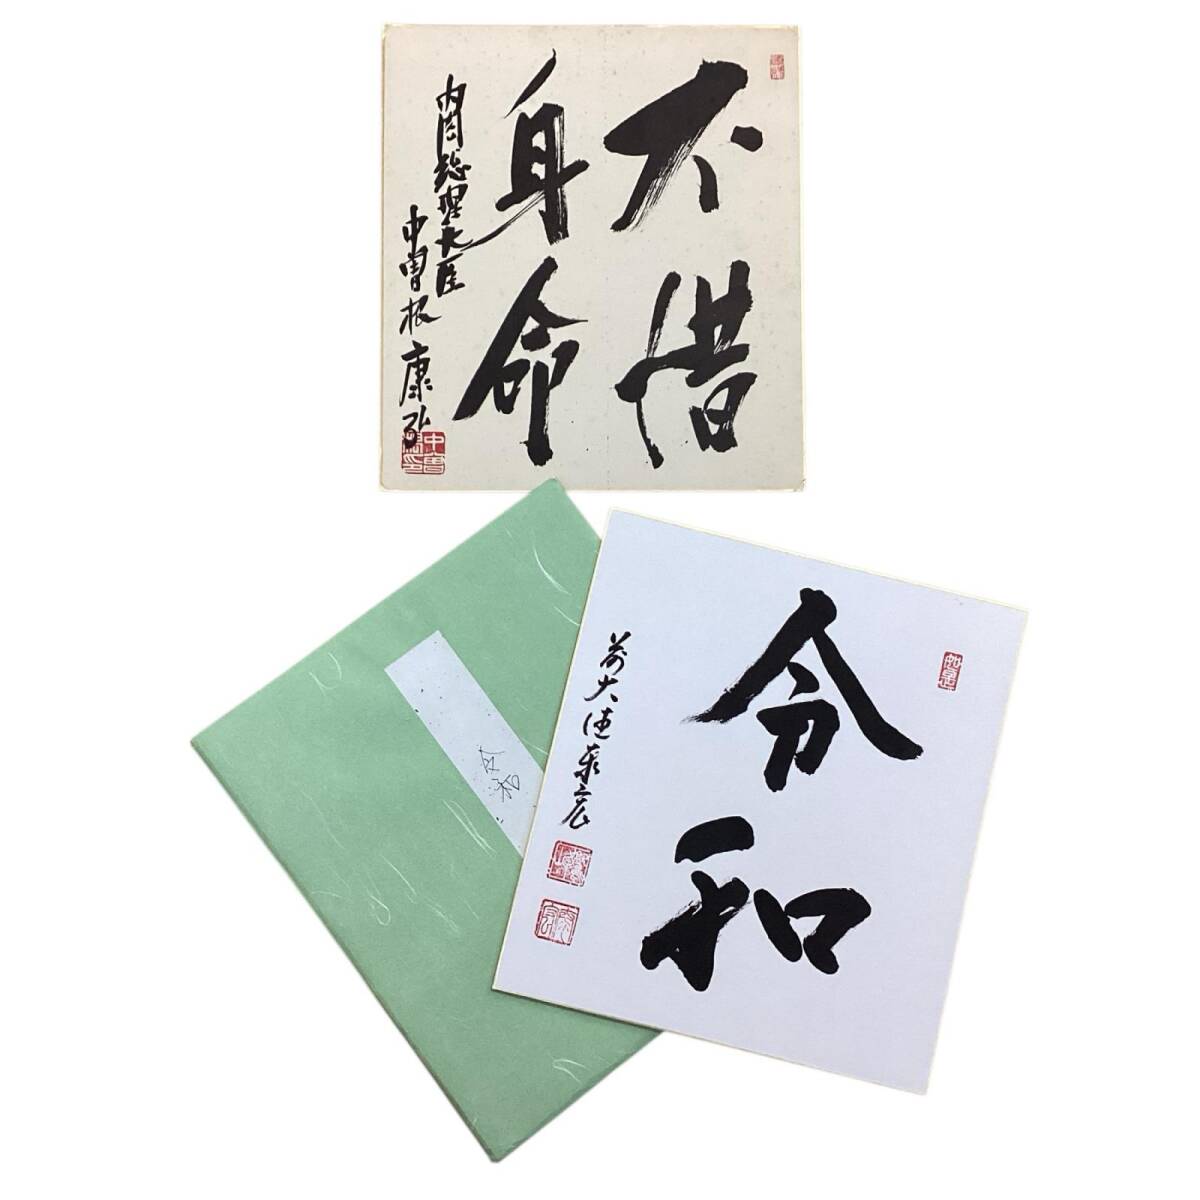 不惜
身命
内閣総理大臣
中曽根康弘
令和
前大徳泰宏
令和